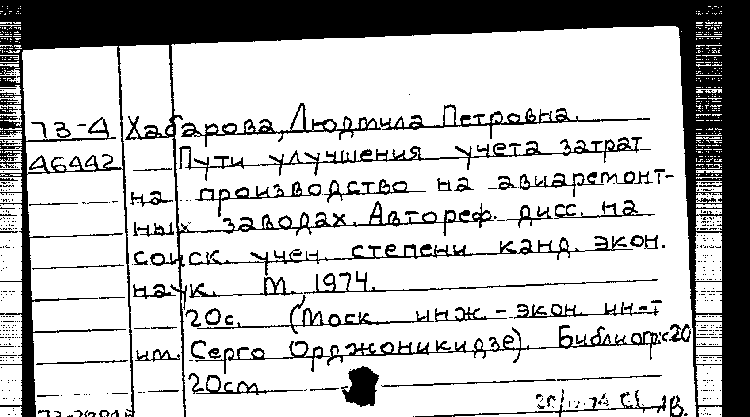 73-4 Хабарова, Людмила Петровна.
46442 Пути улучшения учета затрат
на производство на авиаремонт-
ных заводах. Автореф. дисс. на
соиск. учен. степени канд. экон.
наук. М., 1974.
20с. (Моск. инж.-экон. ин-т
им. Серго Орджоникидзе). Библиогр: с 20
20см.